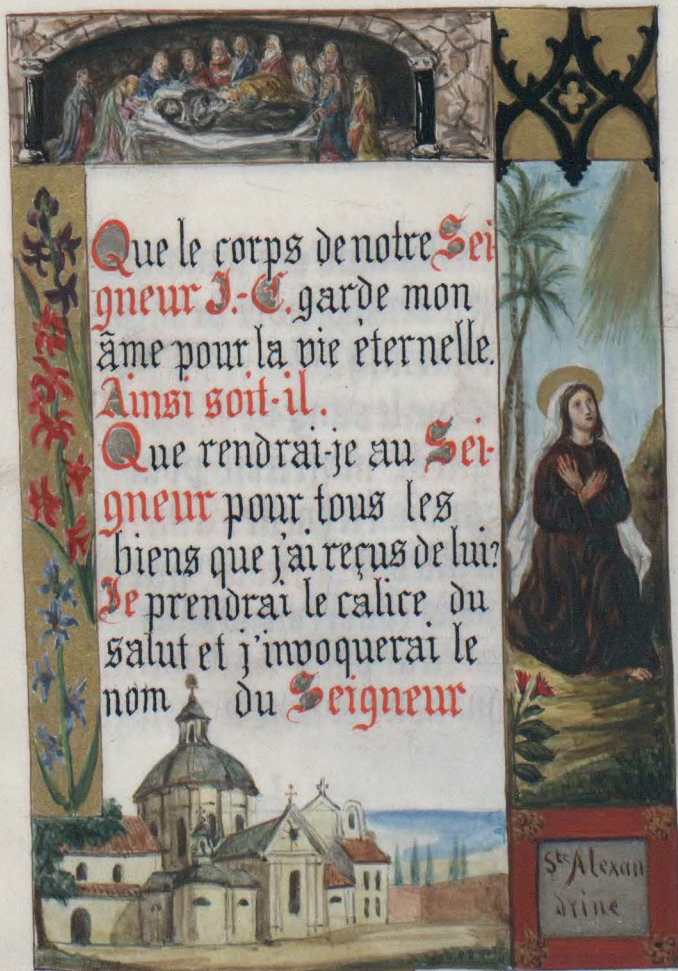 Que le corps de notre Sei
gneur J.-C. garde mon
âme pour la vie èternelle.
Ainsi soit-il.
Que rendrai-je au Sei-
gneur pour tous les
biens que j'ai reçus de lui?
Je prendrai le calice du
salut et j'invoquerai le
nom du Seigneur
Ste Alexan
drine